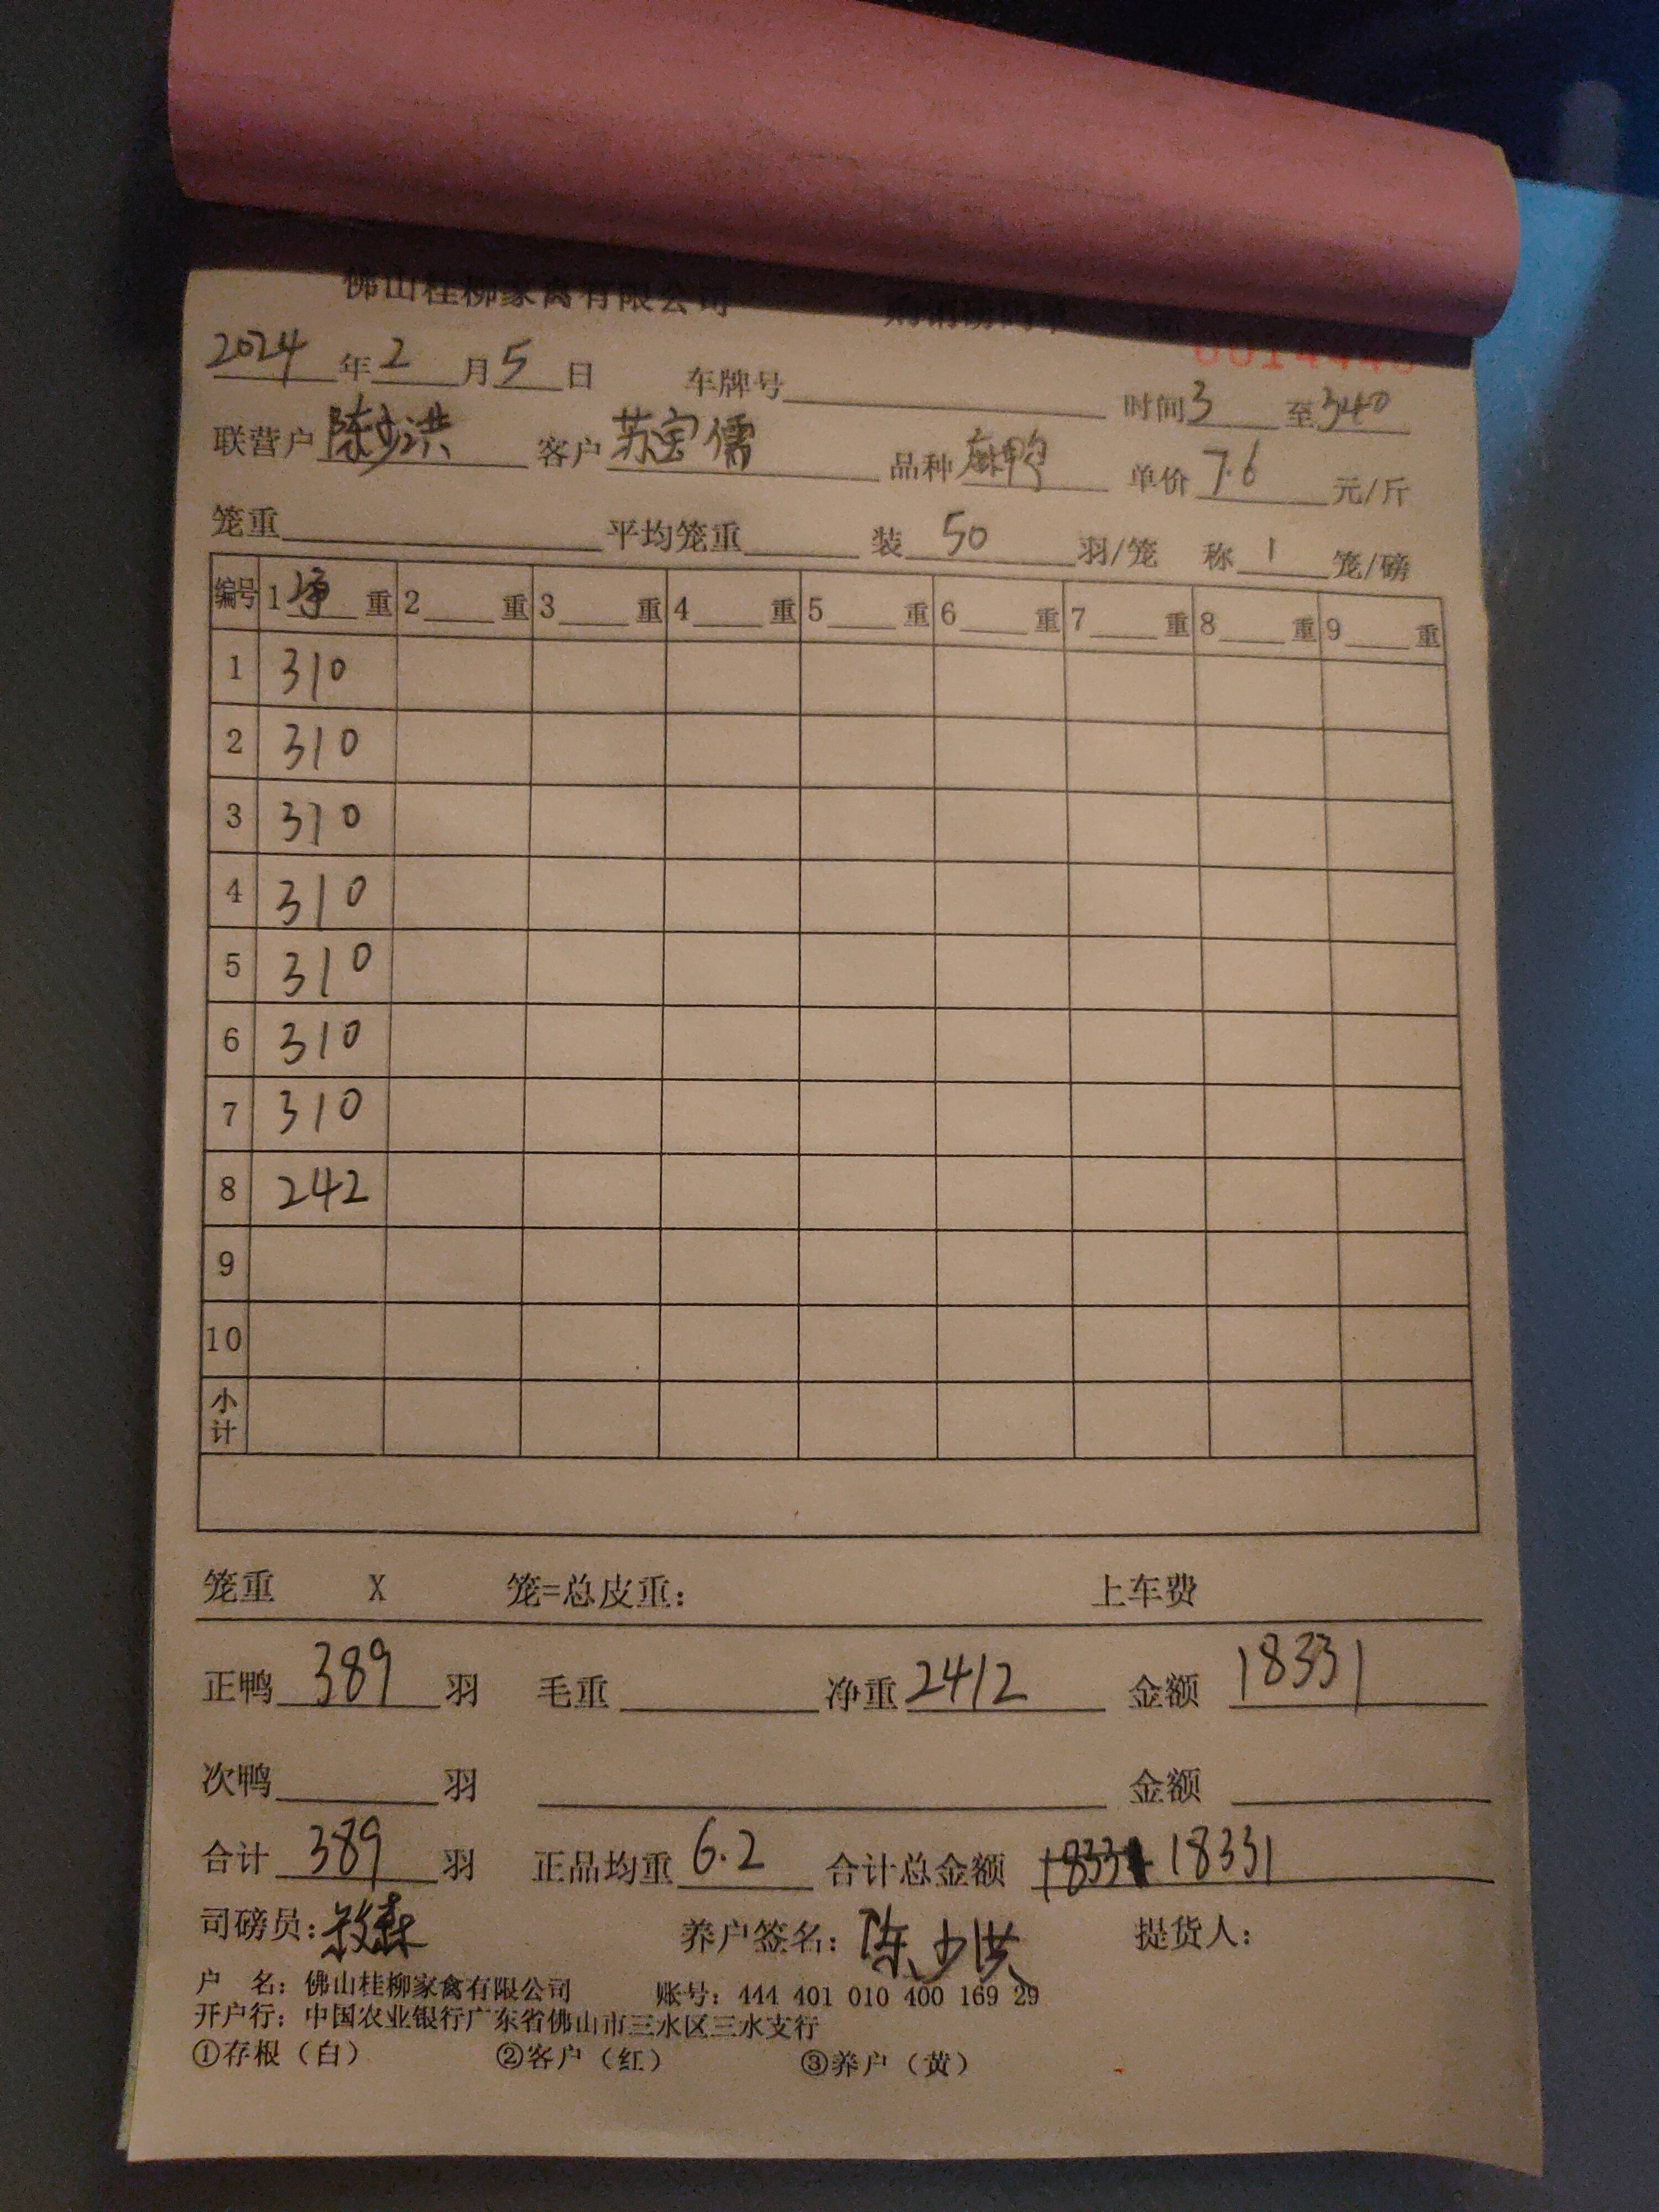 佛山桂柳家禽有限公司
2024年2月5日 车牌号 时间3至340
联营户陈少洪 客户苏宝儒 品种麻鸭 单价7.6元/斤
笼重 平均笼重 装50羽/笼 称1笼/磅
编号 1净重 2重 3重 4重 5重 6重 7重 8重 9重
1 310
2 310
3 310
4 310
5 310
6 310
7 310
8 242
9
10
小计
笼重 X 笼=总皮重: 上车费
正鸭389羽 毛重 净重2412 金额18331
次鸭 羽 金额
合计389羽 正品均重6.2 合计总金额 18331
司磅员: 养户签名:陈少洪 提货人:
户 名: 佛山桂柳家禽有限公司 账号: 444 401 010 400 169 29
开户行: 中国农业银行广东省佛山市三水区三水支行
①存根（白） ②客户（红） ③养户（黄）